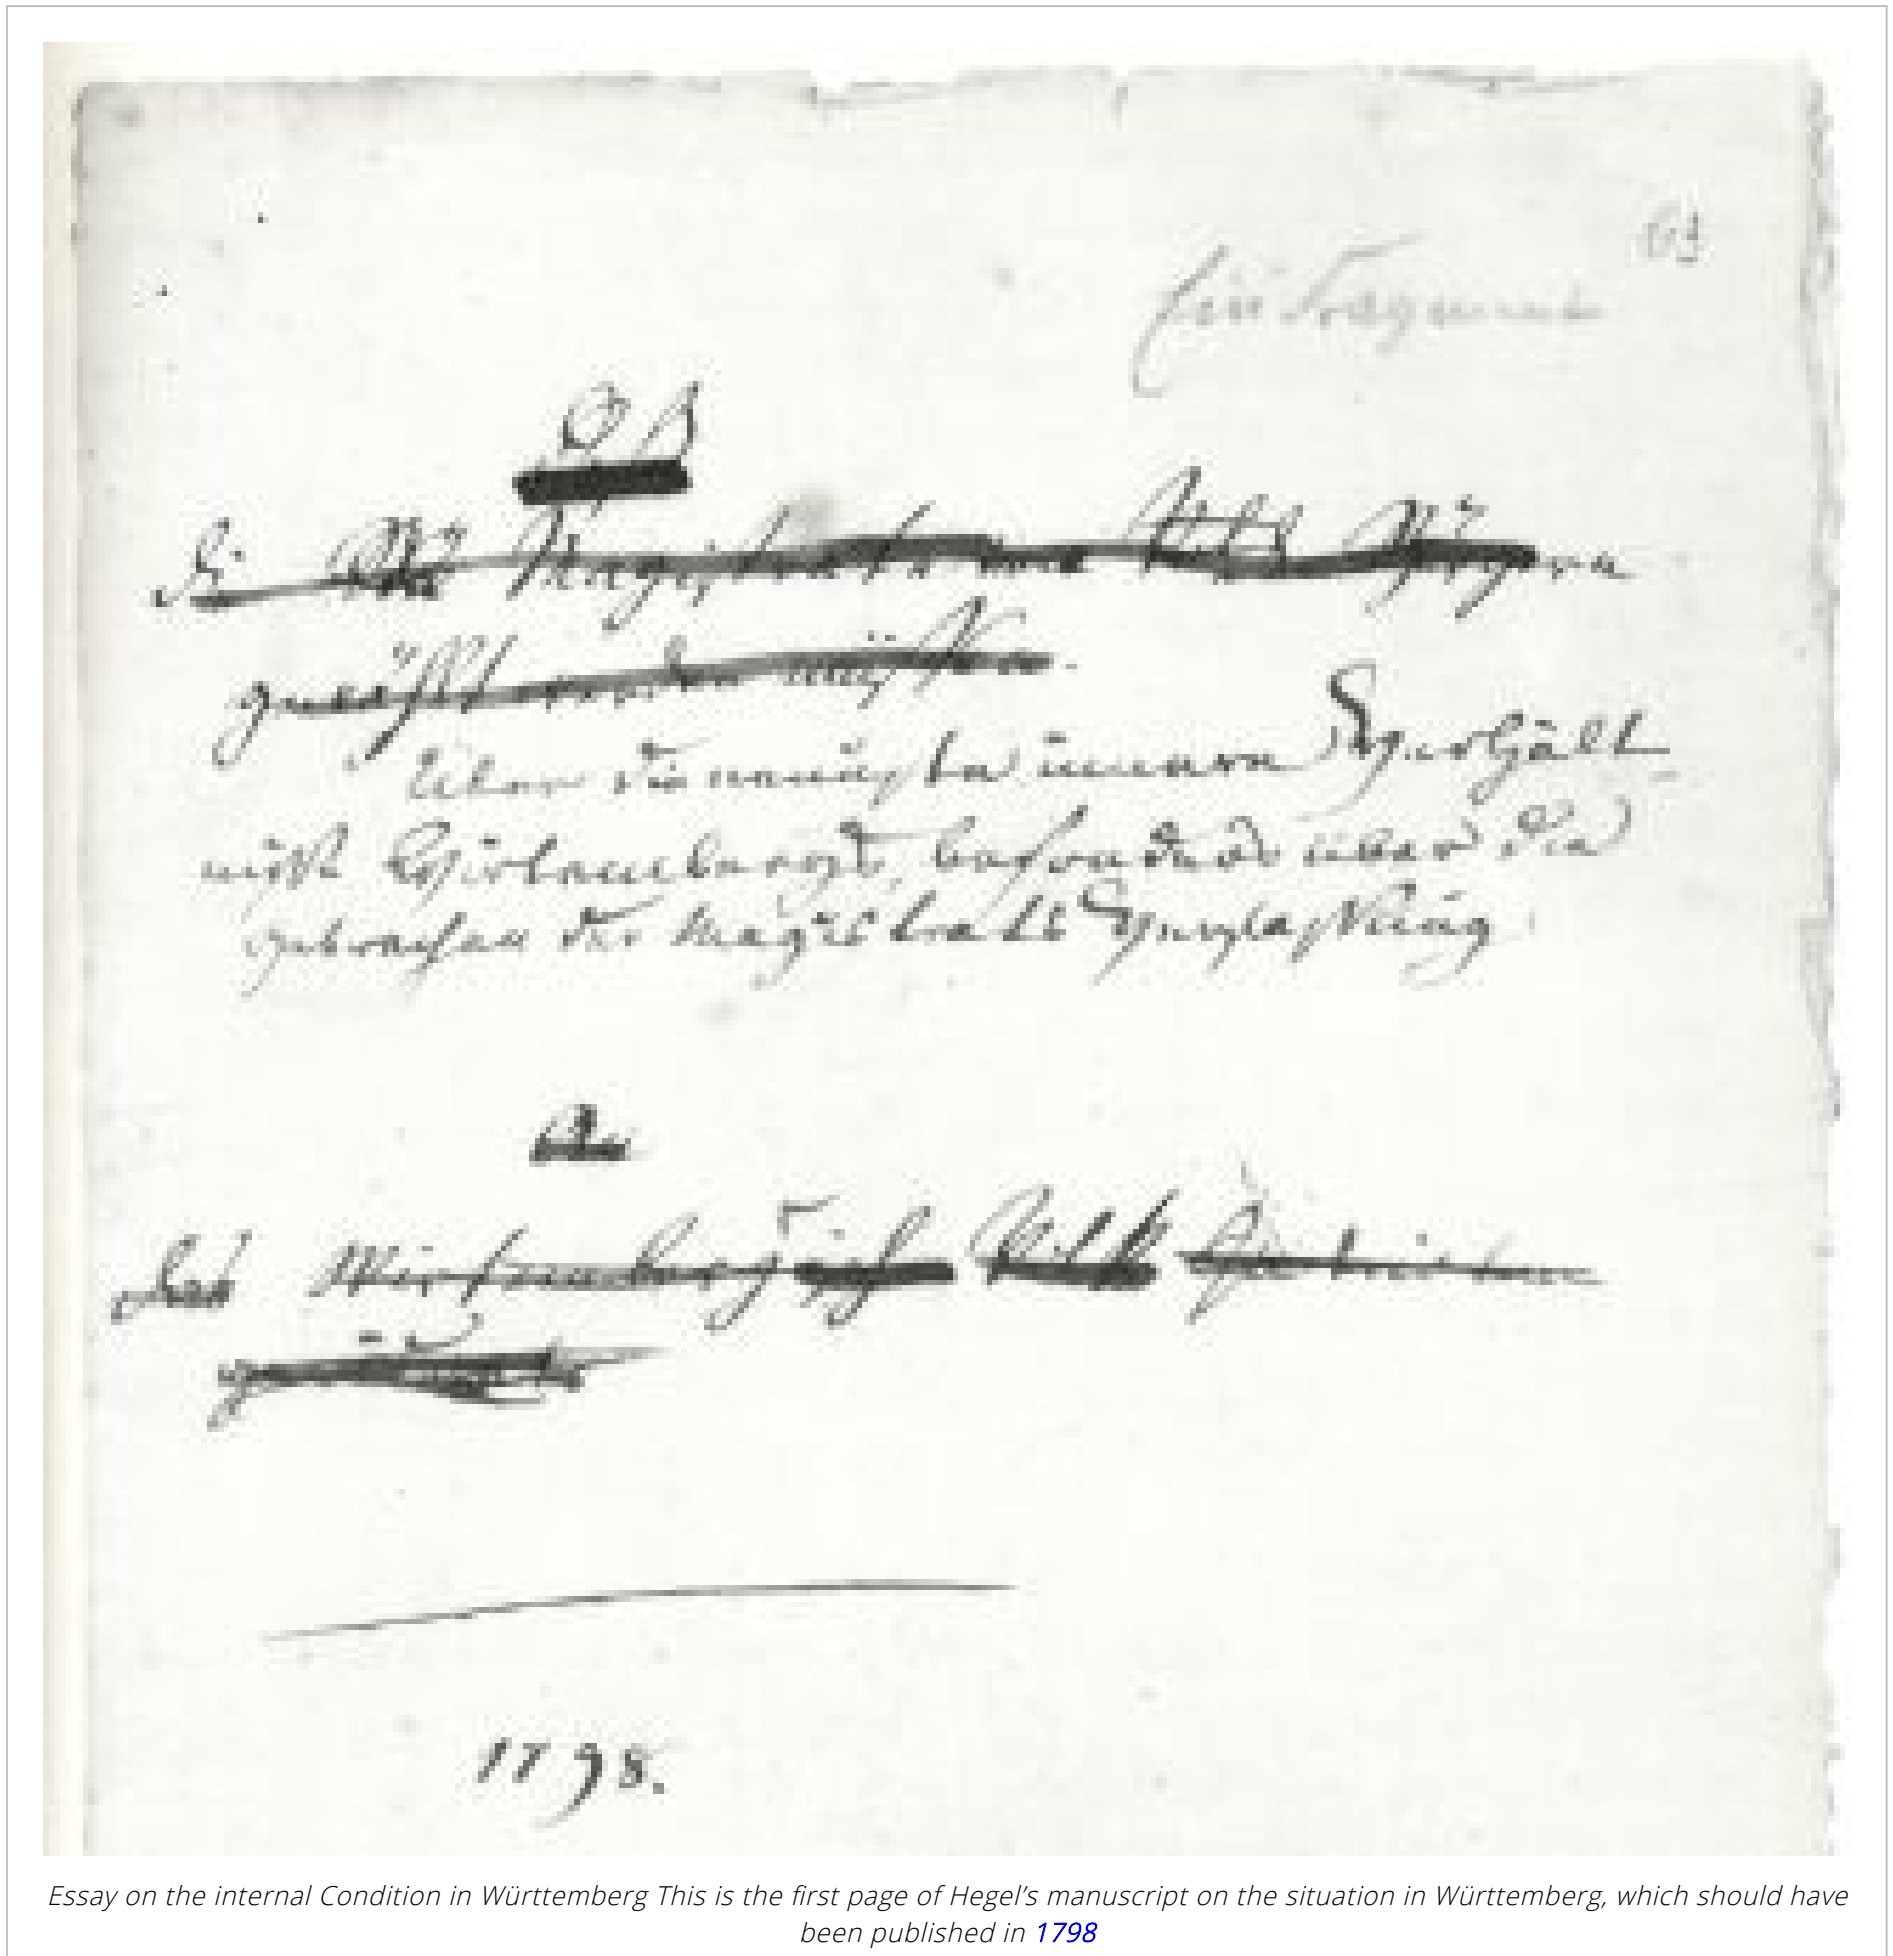 Ein Fragment
Daß
die Magistrate von Bürgern
gewählt werden müssen.
Über die neuesten innern Verhält-
nisse Wirtembergs, besonders über die
Gebrechen der Magistratsverfassung
An
das Wirtembergische Volk
1798.
Essay on the internal Condition in Württemberg This is the first page of Hegel’s manuscript on the situation in Württemberg, which should have
been published in 1798